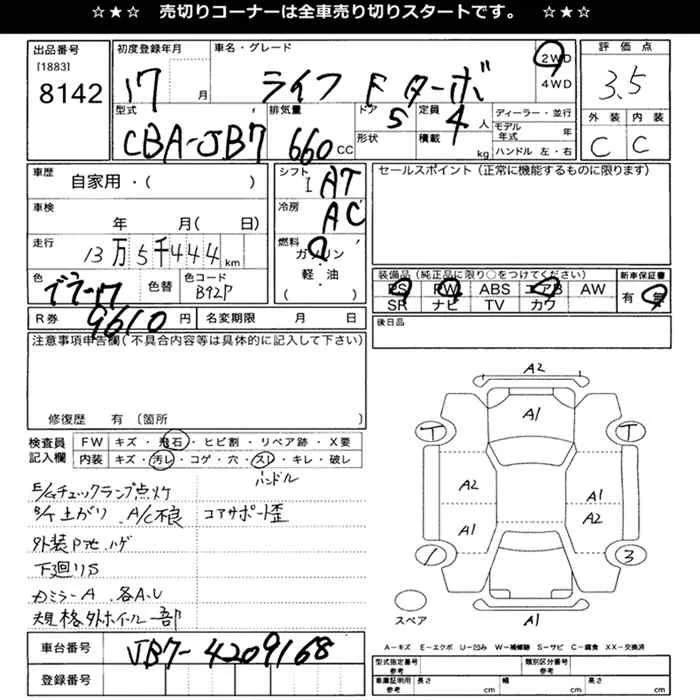 ☆★☆ 売切りコーナーは全車売り切りスタートです。 ☆★☆
出品番号 初度登録年月 車名・グレード 評価点
[1883] 8142
17 月 ライフ F ターボ 2WD 4WD 3.5
型式 排気量 ドア 定員 ディーラー・並行 外装 内装
CBA-JB7 660 CC 5 4 人 モデル年式 年 C C
形状 積載 kg ハンドル 左・右
車歴 自家用・( ) シフト I AT セールスポイント(正常に機能するものに限ります)
車検 年 月( 日) 冷房 AC
走行 13万5千444km 燃料 ガソリン・軽・油 ( )
色 ブラック 色替 色コード B92P
装備品(純正品に限り○をつけてください) 新車保証書
PS PW ABS エアB AW 有・無
SR ナビ TV カワ
R券 9610円 名変期限 月 日 後日品
注意事項申告欄(不具合内容等は具体的に記入して下さい)
修復歴 有 〔箇所 〕
検査員記入欄 FW キズ・飛石・ヒビ割・リペア跡・X要
内装 キズ・汚レ・コゲ・穴・スレ・キレ・破レ
ハンドル
E/Gチェックランプ点灯
B/T上がり.A/C不良 コアサポート歪
外装P池.ハゲ
下廻りS
カミラーA 各A.U
規格外ホイール一部
A2
A1
T T
A2 A1
A1 A2
1 3
スペア A1
車台番号 JB7-4209168
登録番号
A-キズ E-エクボ U-凹み W-補修跡 S-サビ C-腐食 XX-交換済
型式指定番号 参考 類別区分番号 参考
車庫証明用 参考 長さ cm 幅 cm 高さ cm